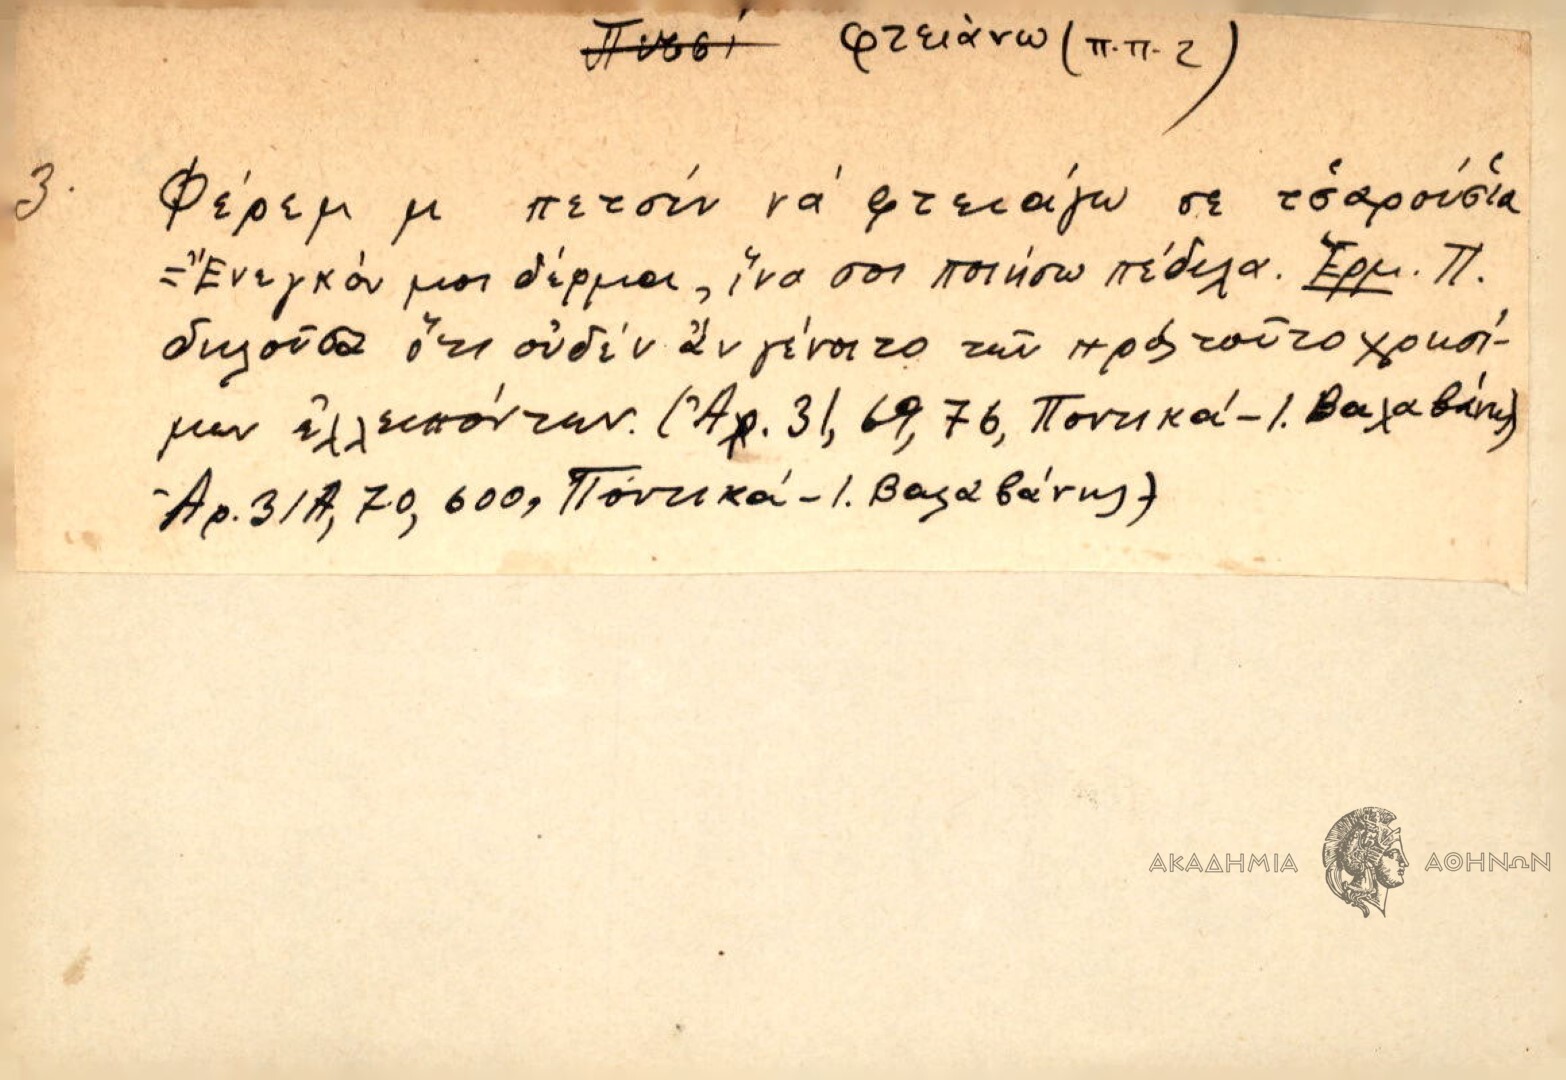 φτειάνω (π.π.τ)
3. Φέρεμ μ πετσίν νά φτειάγω σε τσ̌αρούσ̌ια
= Ἔνεγκόν μοι δέρμα, ἵνα σοι ποιήσω πέδιλα. Ἑρμ. Π.
δηλοῦσα ὅτι οὐδέν ἄν γένοιτο τῶν πρός τοῦτο χρησί-
μων ἐλλειπόντων. (Ἀρ. 31, 69, 76, Ποντικά - Ι. Βαλαβάνης)
Ἀρ. 31Α, 70, 600, Ποντικά - Ι. Βαλαβάνης)
ΑΚΑΔΗΜΙΑ ΑΘΗΝΩΝ